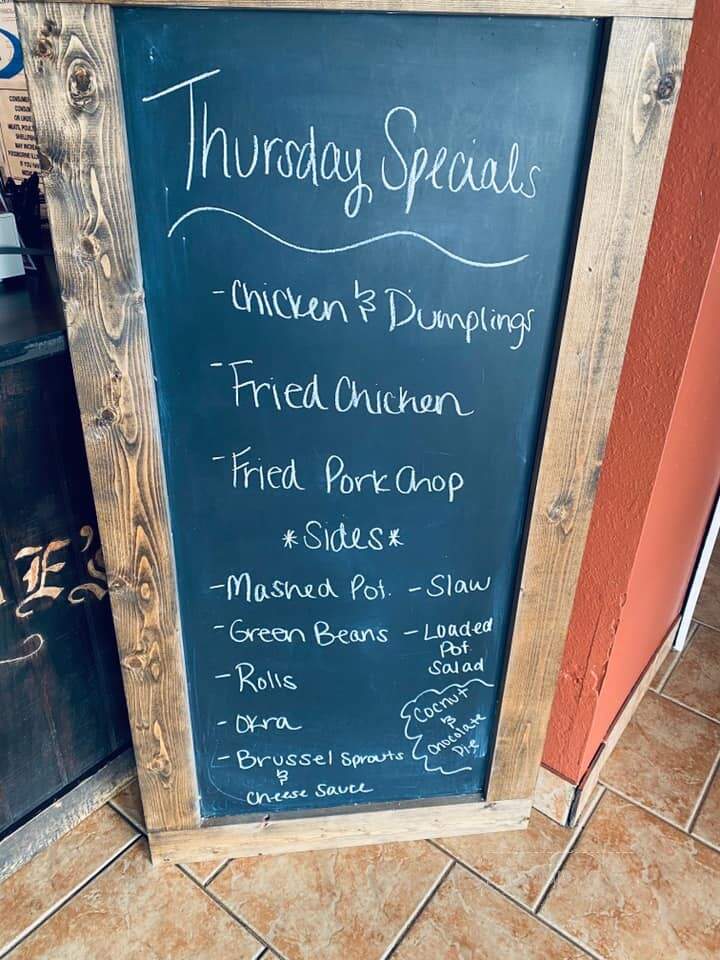 Thursday Specials
- Chicken & Dumplings
- Fried Chicken
- Fried Pork Chop
*Sides*
- Mashed Pot.
- Green Beans
- Rolls
- Okra
- Brussel Sprouts
&
Cheese Sauce
- Slaw
- Loaded
Pot.
Salad
Cocnut
&
Chocolate
Pie
E's